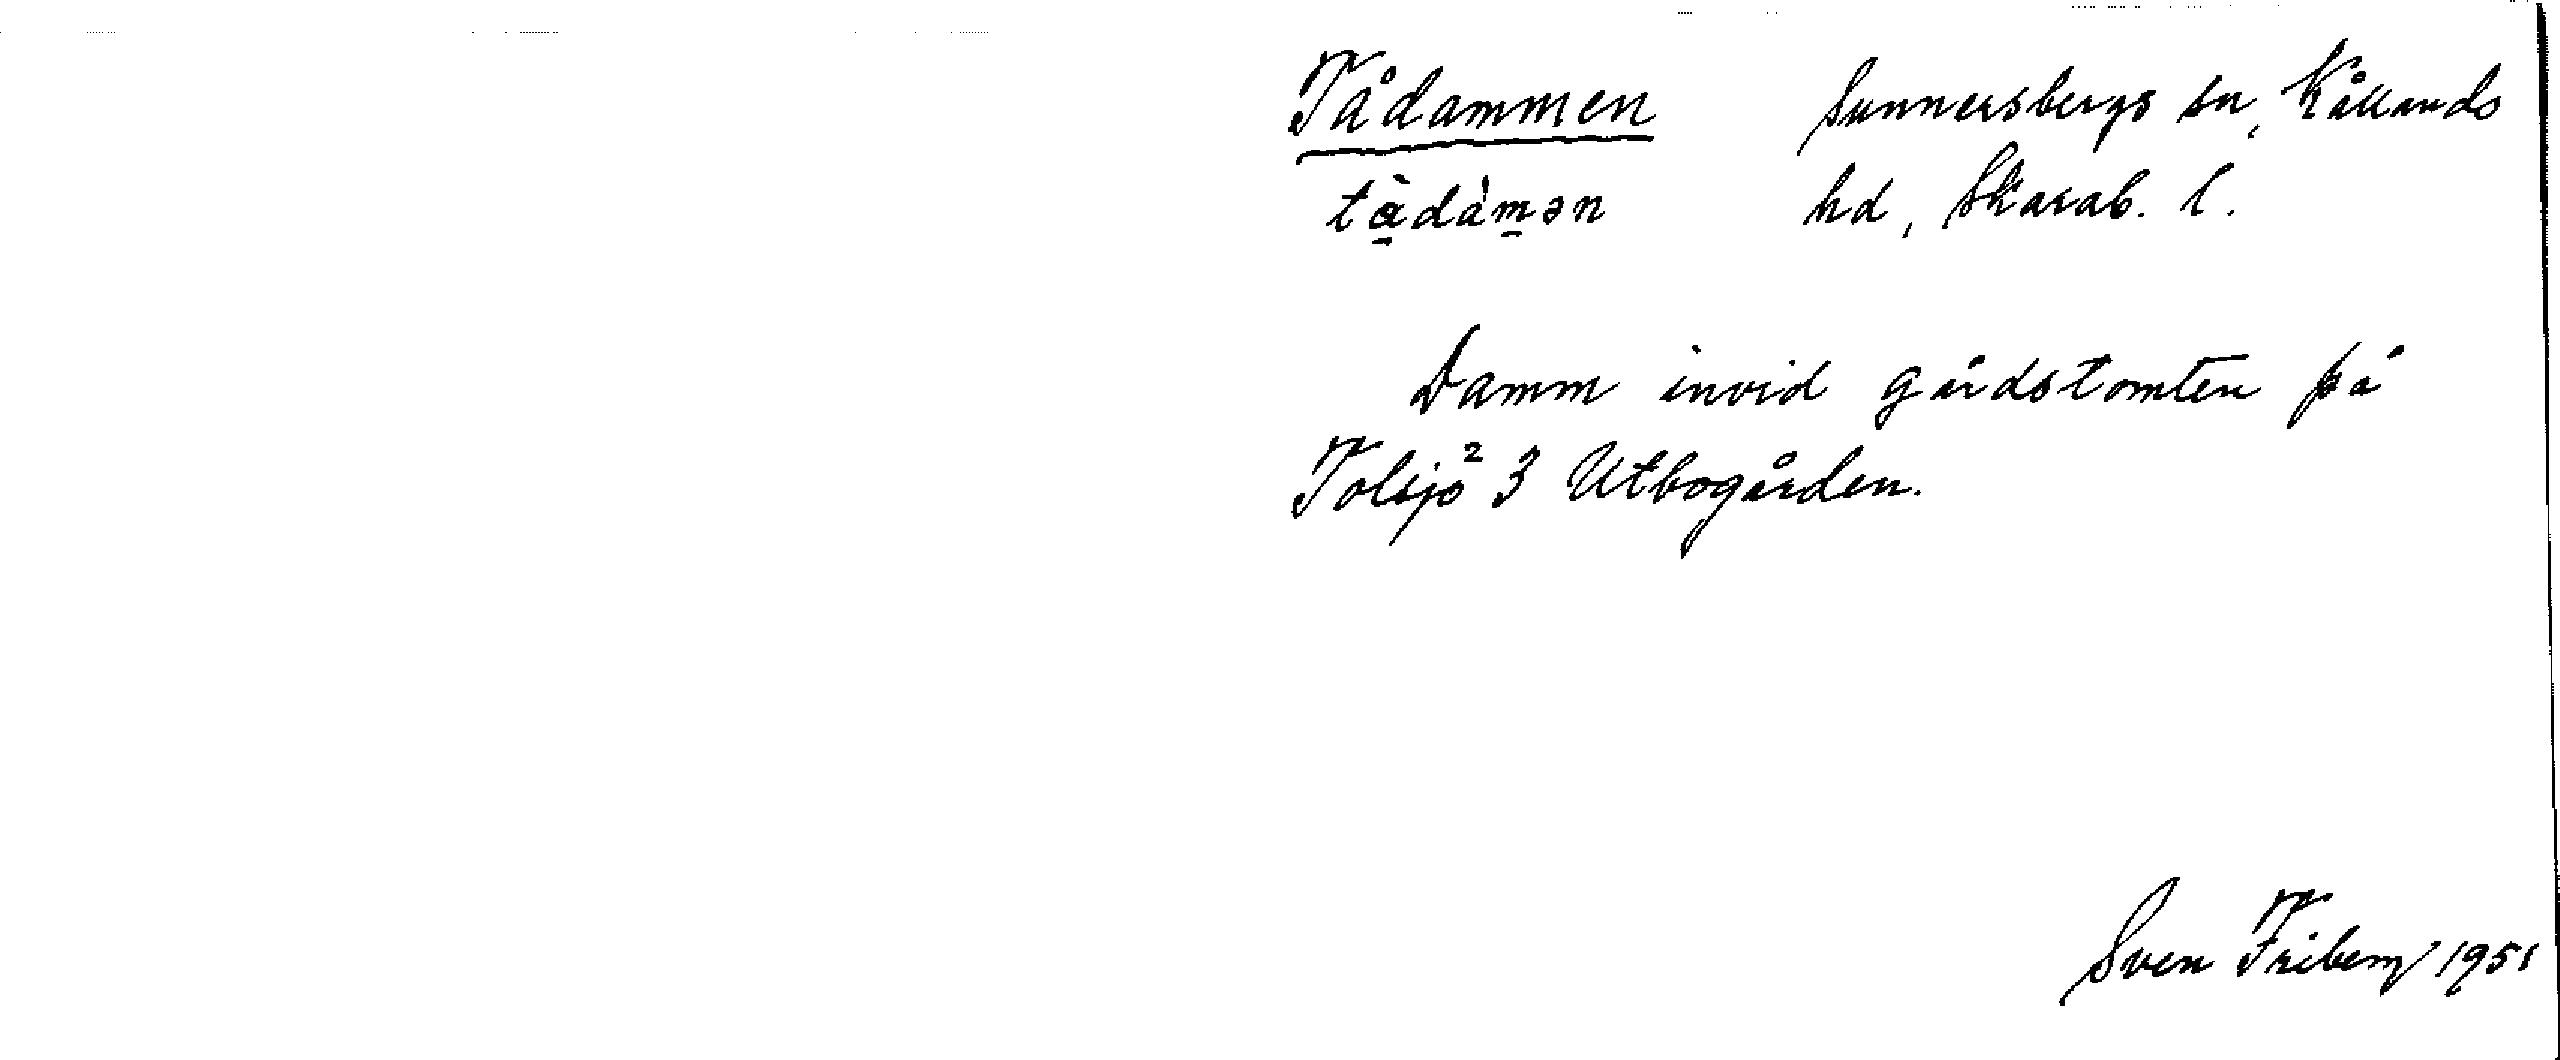 Tådammen Sunnersbergs sn, Kållands
tàdàmən hd, Skarab. l.
Damm invid gårdstomten på
Tolsjö 3 Utbogården.
Sven Friberg 1951